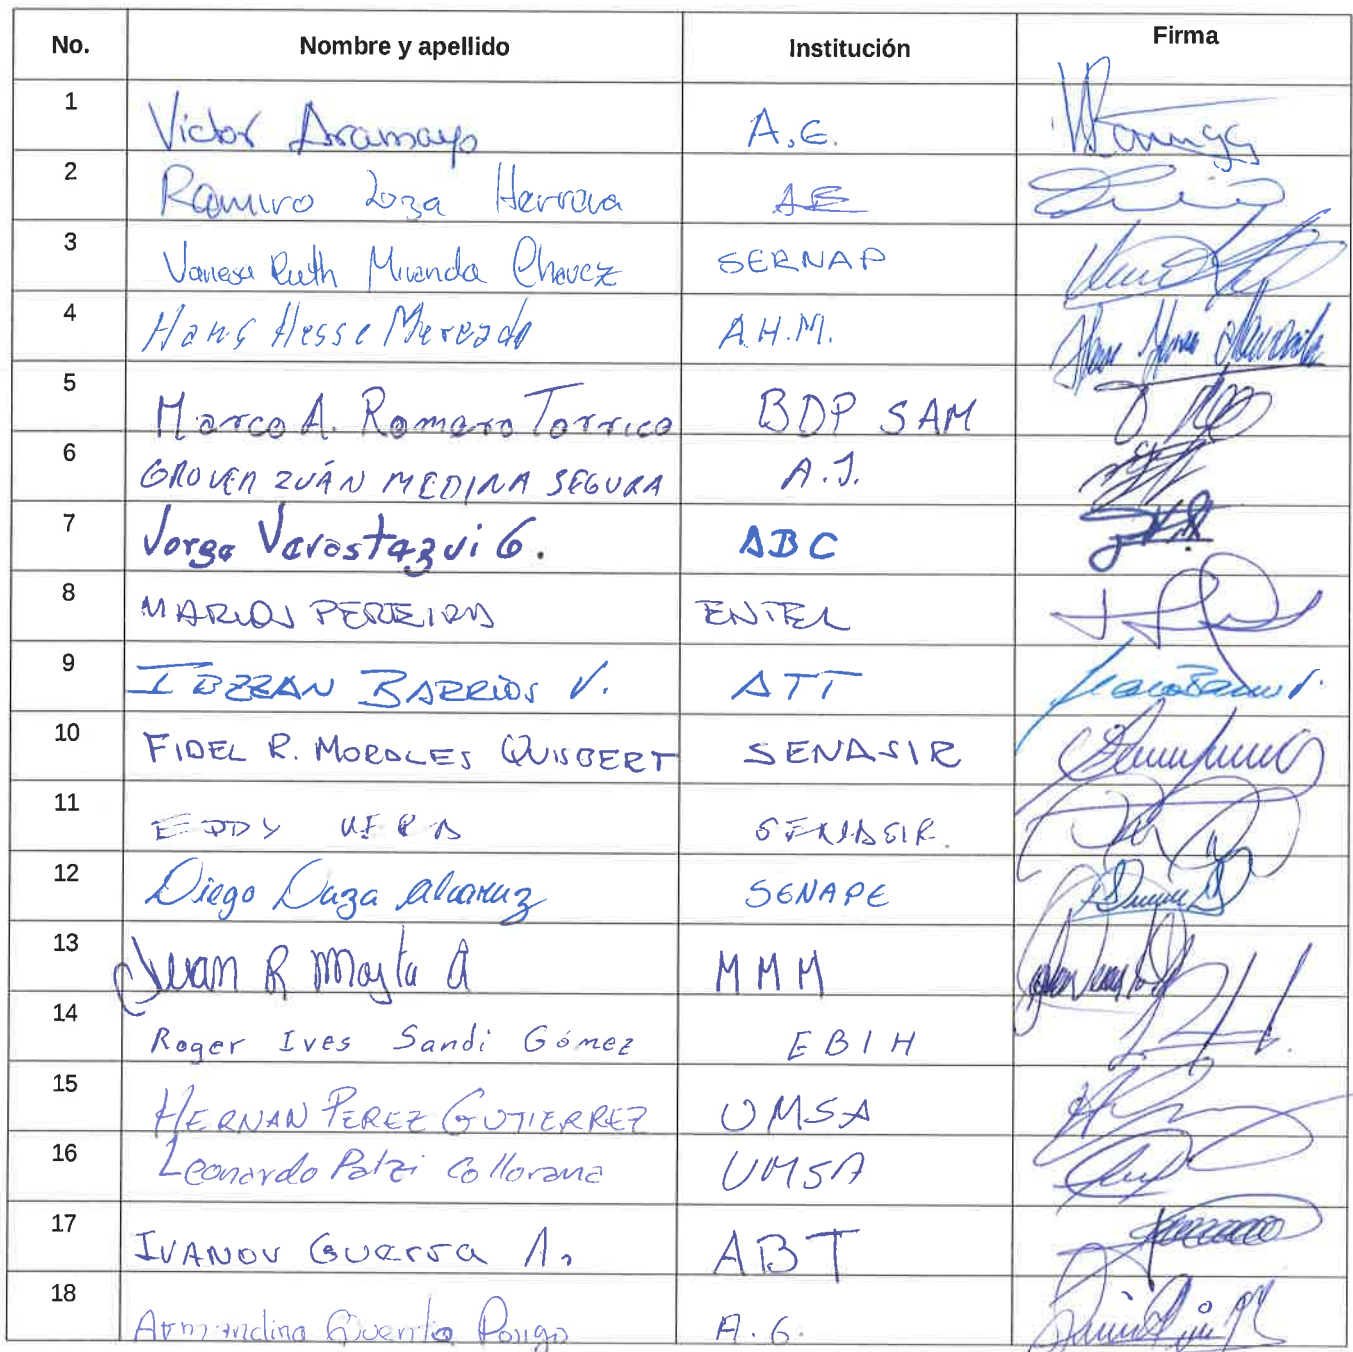 No. Nombre y apellido Institución Firma
1 Victor Aramayo A.E.
2 Ramiro Loza Herrera AE
3 Vanesa Ruth Miranda Chavez SERNAP
4 Hans Hesse Mercado A.H.M.
5 Marco A. Romero Torrico BDP SAM
6 GROVER IVÁN MEDINA SEGURA A.J.
7 Jorge Verastegui G. ABC
8 MARLOS PEREIRA ENTEL
9 BARRIOS V. ATT
10 FIDEL R. MORALES QUISBERT SENASIR
11 EDDY VERA SENASIR.
12 Diego Daza Alcaraz SENAPE
13 Juan R Mayta A MMM
14 Roger Ives Sandi Gómez EBIH
15 HERNAN PEREZ GUTIERREZ UMSA
16 Leonardo Patzi Collorana UMSA
17 IVANOV Guerra A. ABT
18 A.G.